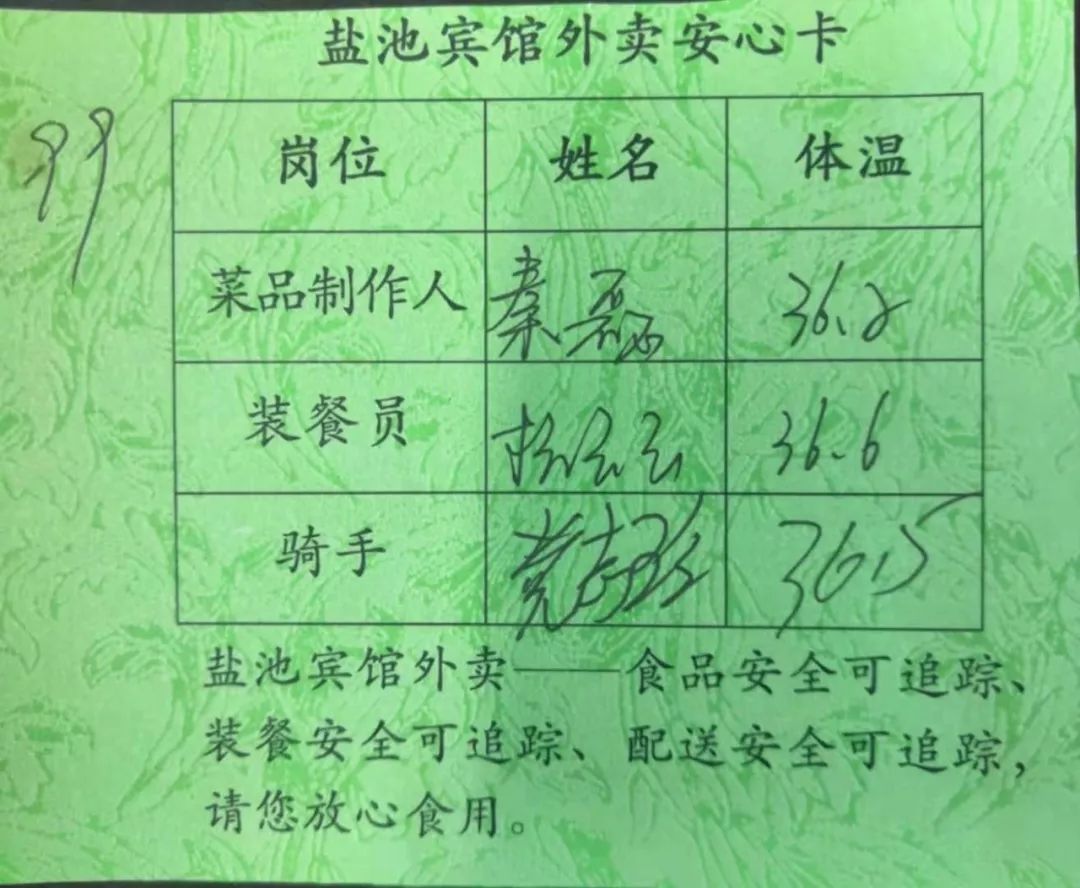 盐池宾馆外卖安心卡
99
岗位 姓名 体温
菜品制作人 秦磊 36.2
装餐员 36.6
骑手 36.5
盐池宾馆外卖——食品安全可追踪、
装餐安全可追踪、配送安全可追踪,
请您放心食用。